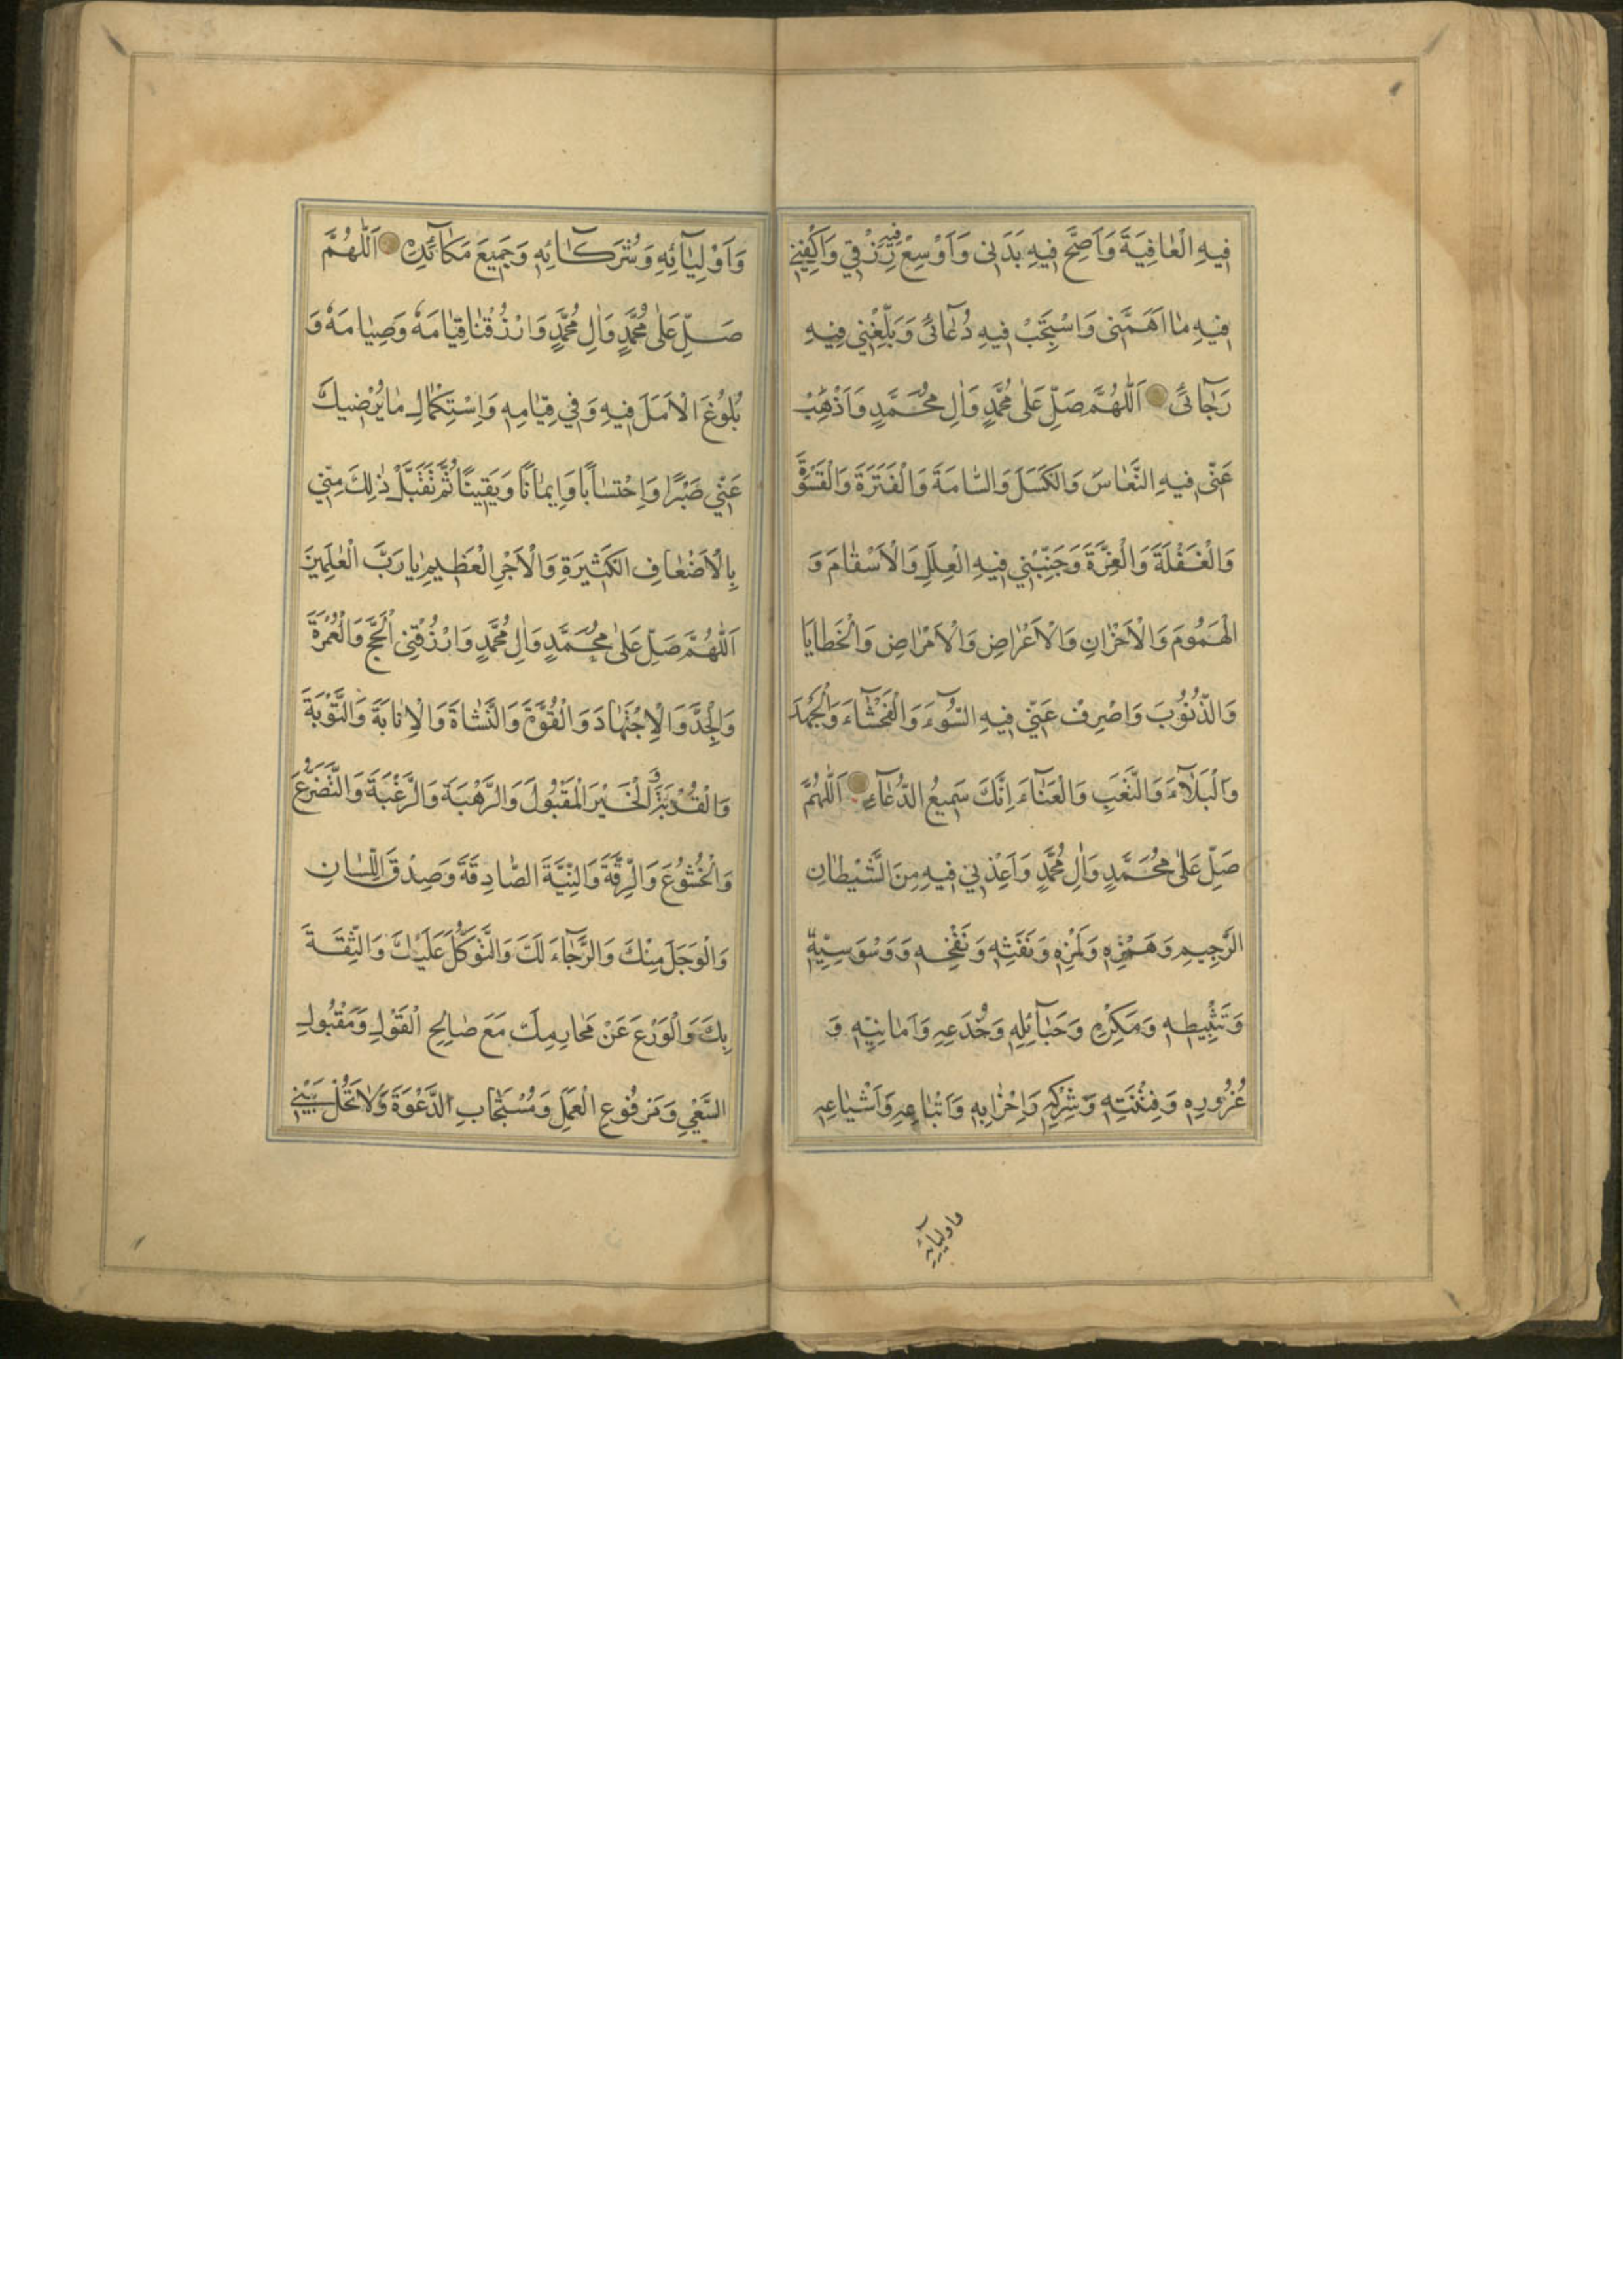 فِيهِ الْعَافِيَةَ وَاَصِحَّ فِيهِ بَدَنِى وَاَوْسِعْ فِيهِ رِزْقِي وَاكْفِنِي
فِيهِ مَا اَهَمَّنِى وَاسْتَجِبْ فِيهِ دُعَآئِى وَبَلِّغْنِي فِيهِ
رَجَآئِى اَللّٰهُمَّ صَلِّ عَلٰى مُحَمَّدٍ وَاٰلِ مُحَمَّدٍ وَاَذْهِبْ
عَنِّى فِيهِ النُّعَاسَ وَالْكَسَلَ وَالسَّامَةَ وَالْفَتْرَةَ وَالْقَسْوَةَ
وَالْغَفْلَةَ وَالْغِرَّةَ وَجَنِّبْنِي فِيهِ الْعِلَلَ وَالْاَسْقَامَ وَ
الْهُمُومَ وَالْاَحْزَانِ وَالْاَعْرَاضِ وَالْاَمْرَاضِ وَالْخَطَايَا
وَالذُّنُوبَ وَاصْرِفْ عَنِّي فِيهِ السُّوۤءَ وَالْفَحْشَآءَ وَالْجَهْدَ
وَالْبَلَآءَ وَالتَّعَبِ وَالْعَنَآءَ اِنَّكَ سَمِيعُ الدُّعَآءِ اَللّٰهُمَّ
صَلِّ عَلٰى مُحَمَّدٍ وَاٰلِ مُحَمَّدٍ وَاَعِذْنِي فِيهِ مِنَ الشَّيْطَانِ
الرَّجِيمِ وَهَمْزِهِ وَلَمْزِهِ وَنَفْثِهِ وَنَفْخِهِ وَوَسْوَسِتِهِ
وَتَثْبِيطِهِ وَمَكْرِهِ وَحَبَآئِلِهِ وَخُدَعِهِ وَاَمَانِيِّهِ وَ
غُرُورِهِ وَفِتْنَتِهِ وَشِرْكِهِ وَاَحْزَابِهِ وَاَتْبَاعِهِ وَاَشْيَاعِهِ
واوليآئه
وَاَوْلِيَآئِهِ وَشُرَكَآئِهِ وَجَمِيعَ مَكَآئِدِهِ اَللّٰهُمَّ
صَلِّ عَلٰى مُحَمَّدٍ وَاٰلِ مُحَمَّدٍ وَارْزُقْنَا قِيَامَهُ وَصِيَامَهُ وَ
بُلُوغَ الْاَمَلَ فِيهِ وَفِي قِيَامِهِ وَاسْتِكْمَالِ مَا يُرْضِيكَ
عَنِّي صَبْرًا وَاحْتِسَابًا وَاِيمَانًا وَيَقِينًا ثُمَّ تَقَبَّلْ ذٰلِكَ مِنِّي
بِالْاَضْعَافِ الْكَثِيرَةِ وَالْاَجْرِ الْعَظِيمِ يَا رَبَّ الْعٰلَمِينَ
اَللّٰهُمَّ صَلِّ عَلٰى مُحَمَّدٍ وَاٰلِ مُحَمَّدٍ وَارْزُقْنِى الْحَجَّ وَالْعُمْرَةَ
وَالْجِدَّ وَالْاِجْتِهَادَ وَالْقُوَّةَ وَالنَّشَاةَ وَالْاِنَابَةَ وَالتَّوْبَةَ
وَالْقُرْبَةَ وَالْخَيْرَ الْمَقْبُولَ وَالرَّهْبَةَ وَالرَّغْبَةَ وَالتَّضَرُّعَ
وَالْخُشُوعَ وَالرِّقَّةَ وَالنِّيَّةَ الصَّادِقَةَ وَصِدْقَ اللِّسَانِ
وَالْوَجَلَ مِنْكَ وَالرَّجَآءَ لَكَ وَالتَّوَكُّلَ عَلَيْكَ وَالثِّقَةَ
بِكَ وَالْوَرَعَ عَنْ مَحَارِمِكَ مَعَ صَالِحِ الْقَوْلِ وَمَقْبُولِ
السَّعْيِ وَمَرْفُوعِ الْعَمَلِ وَمُسْتَجَابِ الدَّعْوَةَ وَلَا تَحُلْ بَيْنِي